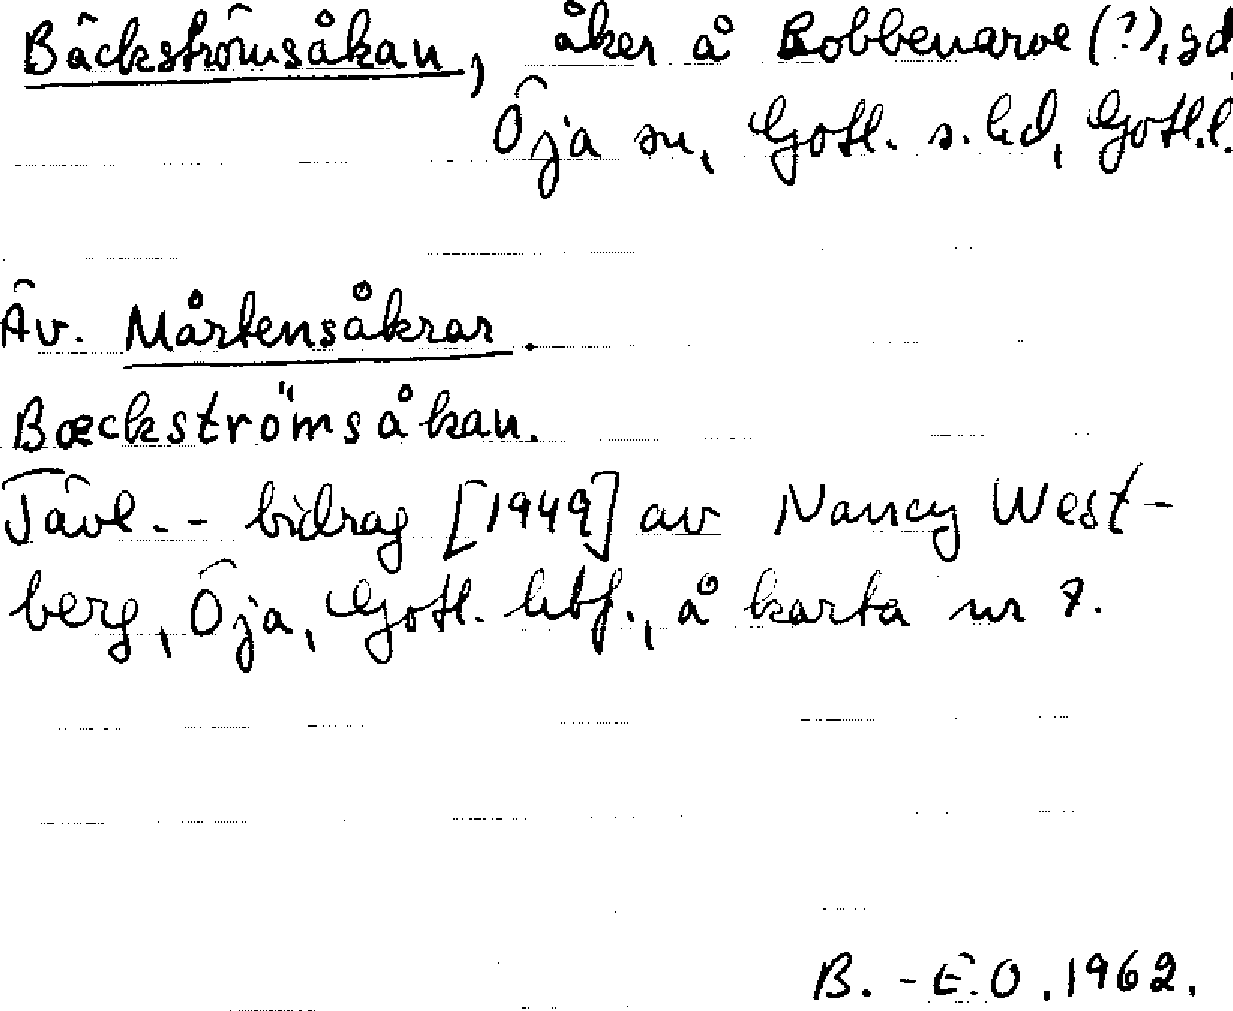 Bäckströmsåkan, åker å Bobbenarve (?), gd
Öja sn, Gotl. s. hd, Gotl. l.
Äv. Mårtensåkrar.
Bæckströmsåkan.
Tävl. - bidrag [1949] av Nancy West-
berg, Öja, Gotl. hbf., å karta nr 7.
B. - E. O. 1962.